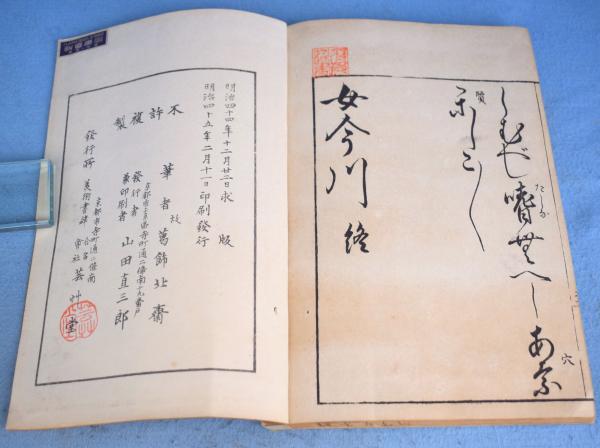 しむべし嗜無へしあな
たしな
穴
賢
かしこく
女今川 終
明治四十四年十二月廿三日求版
明治四十五年二月十一日印刷發行
不許複製
筆者 故 葛飾北齋
京都市上京區寺町通二條南十九番戸
發行者兼印刷者 山田直三郎
京都市寺町通二條南
發行所 美術書肆 合名會社 芸艸堂